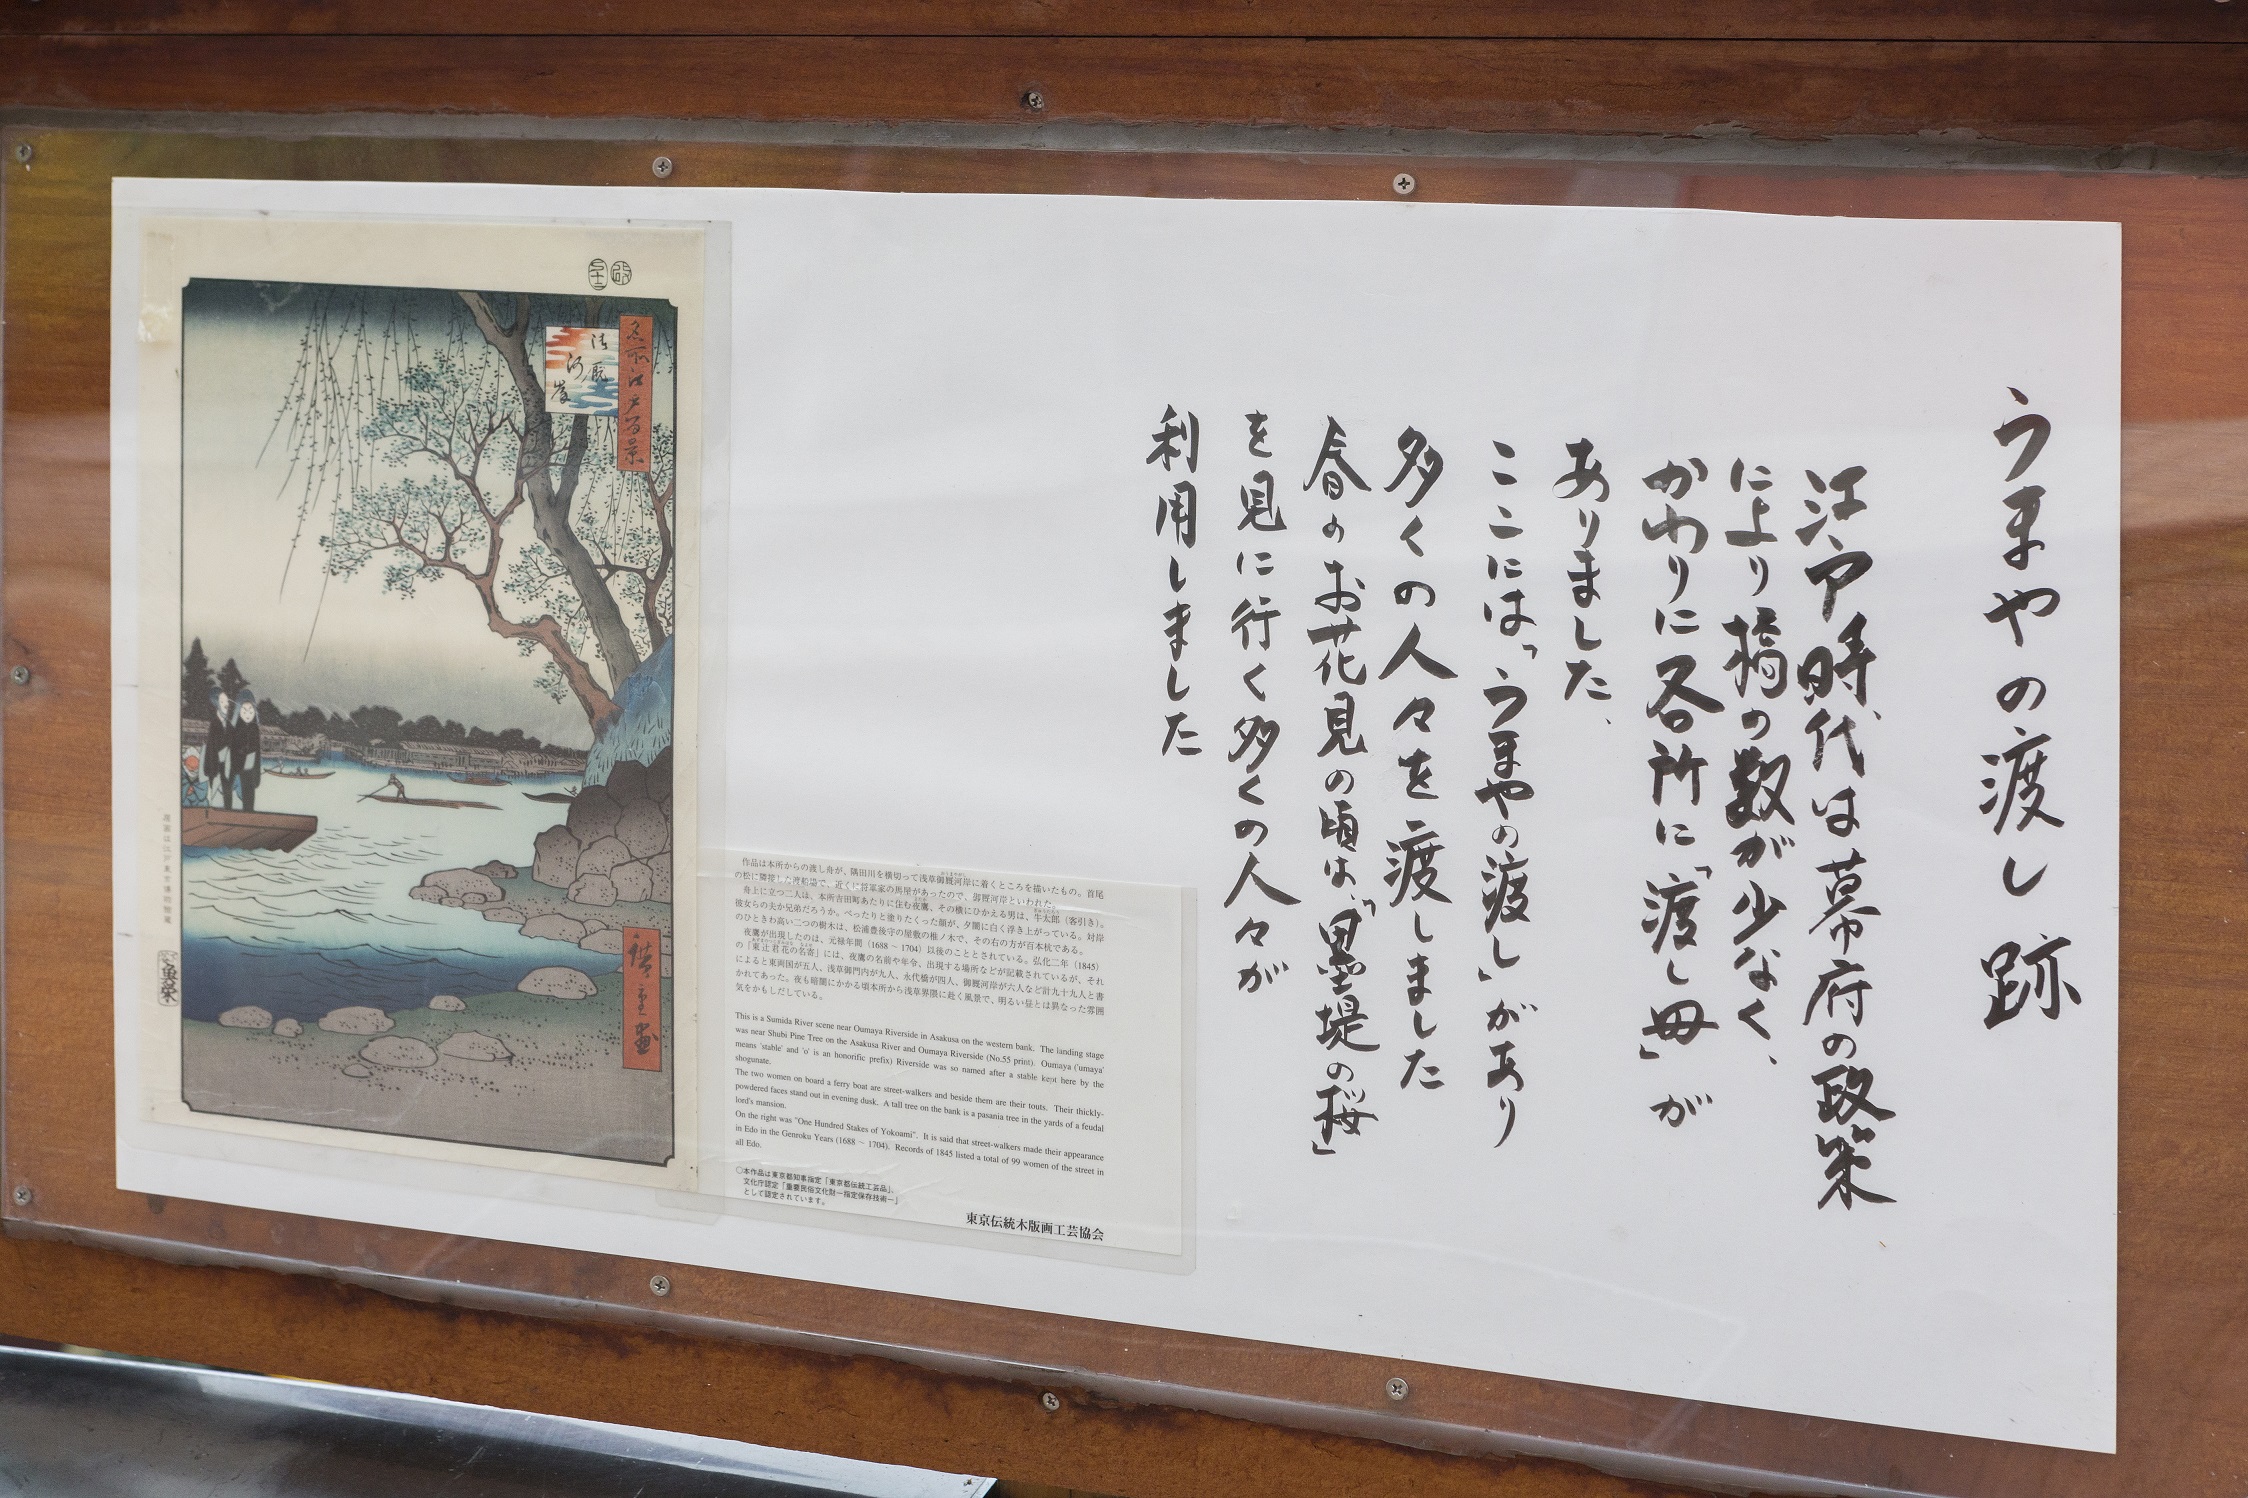 うまやの渡し跡
江戸時代は幕府の政策
により橋の数が少なく、
かわりに各所に「渡し毋」が
ありました、
ここには、「うまやの渡し」があり
多くの人々を渡しました
春のお花見の頃は、「墨堤の桜」
を見に行く多くの人々が
利用しました
名所江戸百景
御厩河岸
廣重画
魚栄
作品は本所からの渡し舟が、隅田川を横切って浅草御厩河岸に着くところを描いたもの。首尾
の松に隣接した渡船場で、近くに将軍家の馬屋があったので、御厩河岸といわれた。
舟上に立つ二人は、本所吉田町あたりに住む夜鷹、その横にひかえる男は、牛太郎（客引き）。
彼女らの夫か兄弟だろうか。べったりと塗りたくった顔が、夕闇に白く浮き上がっている。対岸
のひときわ高い二つの樹木は、松浦豊後守の屋敷の椎ノ木で、その右の方が百本杭である。
夜鷹が出現したのは、元禄年間（1688～1704）以後のこととされている。弘化二年（1845）
の「東辻君花の名寄」には、夜鷹の名前や年令、出現する場所などが記載されているが、それ
によると東両国が五人、浅草御門内が九人、永代橋が四人、御厩河岸が六人など計九十九人と書
かれてあった。夜も暗闇にかかる頃本所から浅草界隈に赴く風景で、明るい昼とは異なった雰囲
気をかもしだしている。
This is a Sumida River scene near Oumaya Riverside in Asakusa on the western bank. The landing stage
was near Shubi Pine Tree on the Asakusa River and Oumaya Riverside (No.55 print). Oumaya ('umaya'
means 'stable' and 'o' is an honorific prefix) Riverside was so named after a stable kept here by the
shogunate.
The two women on board a ferry boat are street-walkers and beside them are their touts. Their thickly-
powdered faces stand out in evening dusk. A tall tree on the bank is a pasania tree in the yards of a feudal
lord's mansion.
On the right was "One Hundred Stakes of Yokoami". It is said that street-walkers made their appearance
in Edo in the Genroku Years (1688 ~ 1704). Records of 1845 listed a total of 99 women of the street in
all Edo.
○本作品は東京都知事指定「東京都伝統工芸品」、
文化庁認定「重要民俗文化財－指定保存技術－」
として認定されています。
東京伝統木版画工芸協会